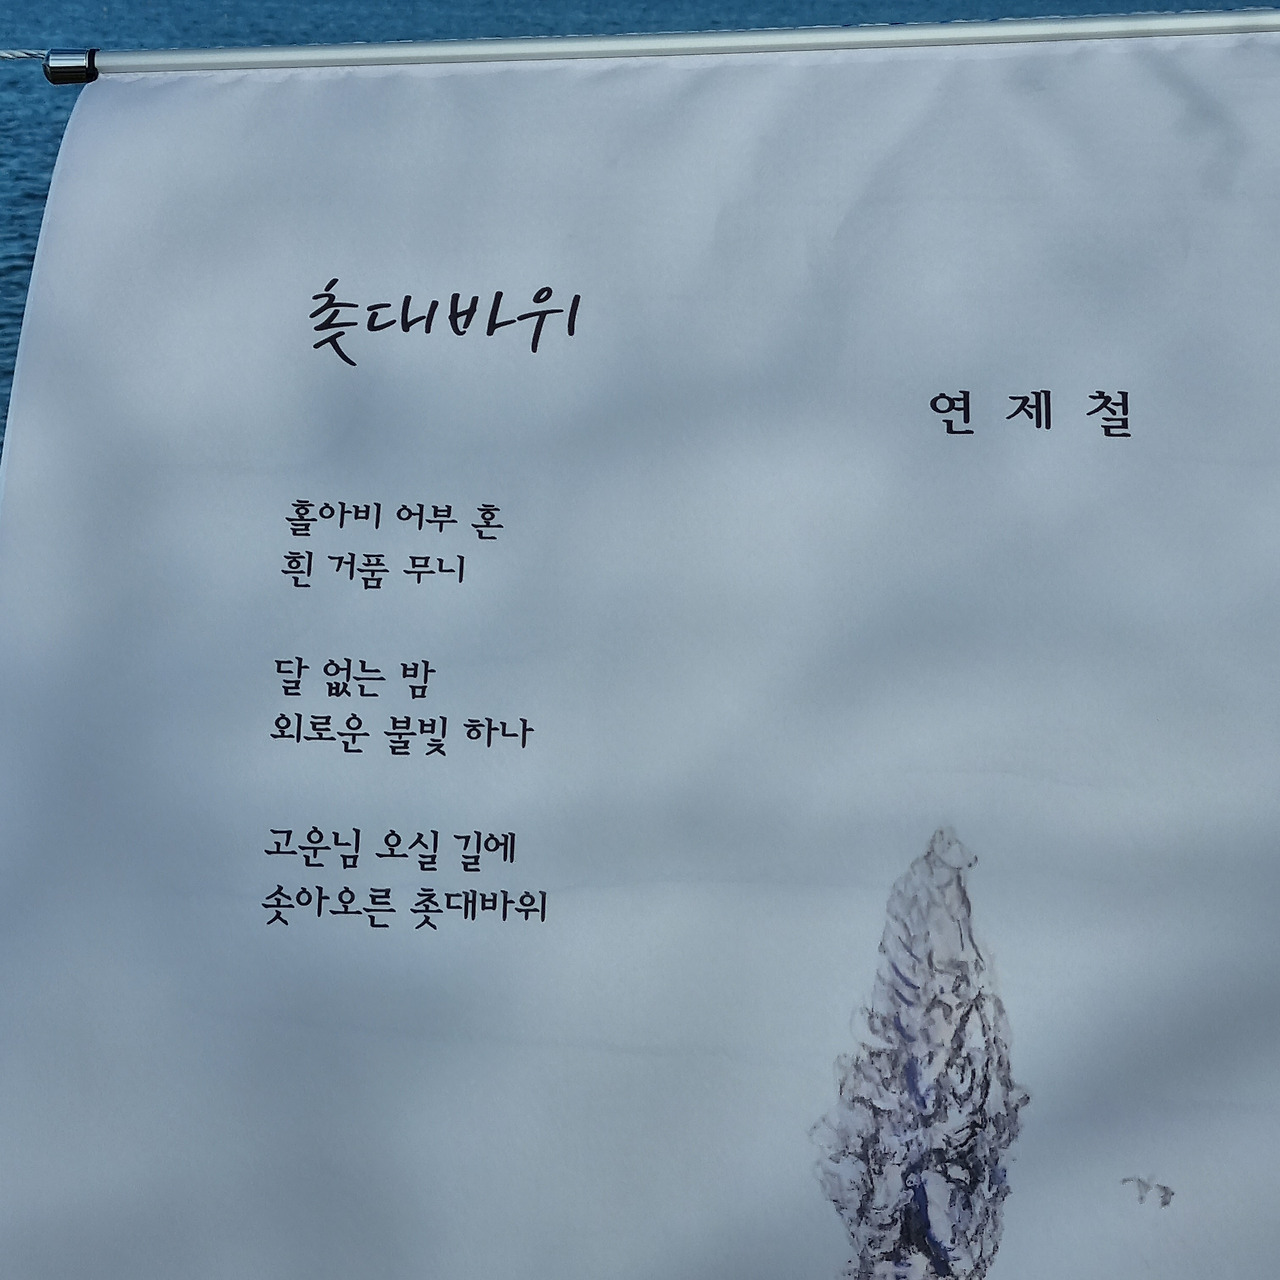 촛대바위
연 제 철
홀아비 어부 혼
흰 거품 무니
달 없는 밤
외로운 불빛 하나
고운님 오실 길에
솟아오른 촛대바위